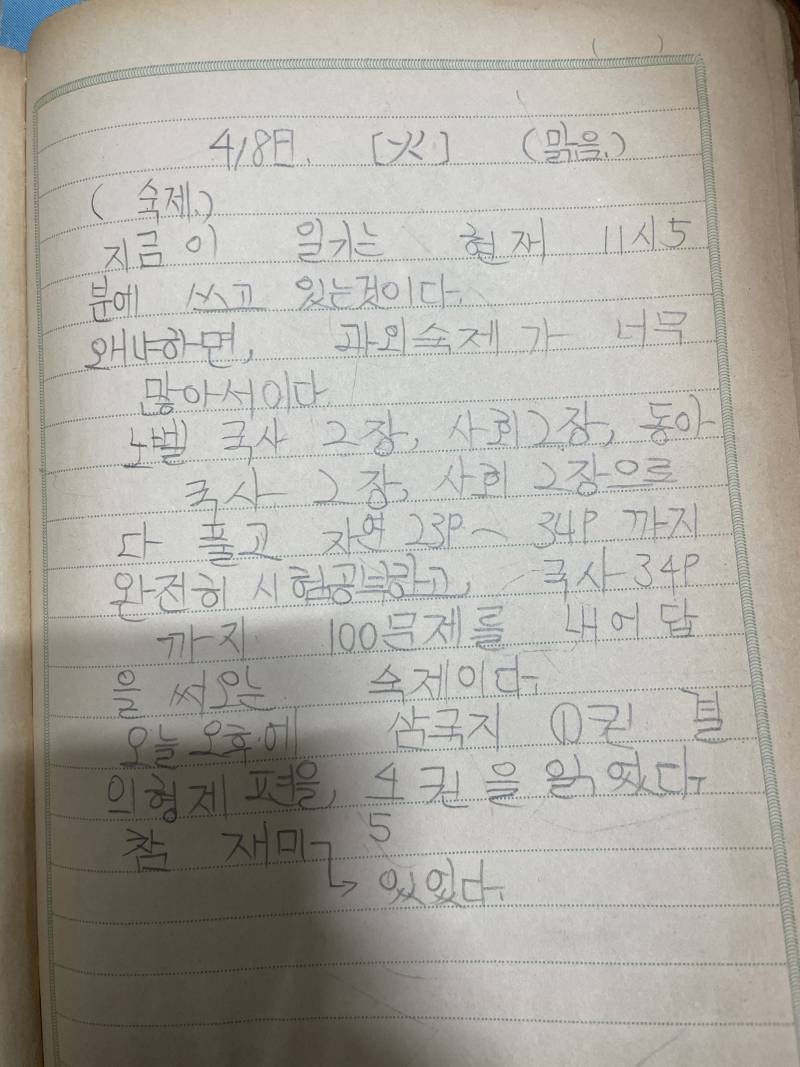 (          )
4/8日. [火] (맑음.)
( 숙제.)
지금 이 일기는 현재 11시5
분에 쓰고 있는것이다.
왜냐하면, 과외숙제가 너무
많아서이다.
노벨 국사 2장, 사회2장, 동아
국사 2장, 사회 2장으로
다 풀고 자연 23P~ 34P 까지
완전히 시험공부하고, 국사 34P
까지 100문제를 내어 답
을 써오는 숙제이다.
오늘 오후에 삼국지 ①권 결
의형제 편을, 4권을 읽었다.
참 재미 5
있었다.